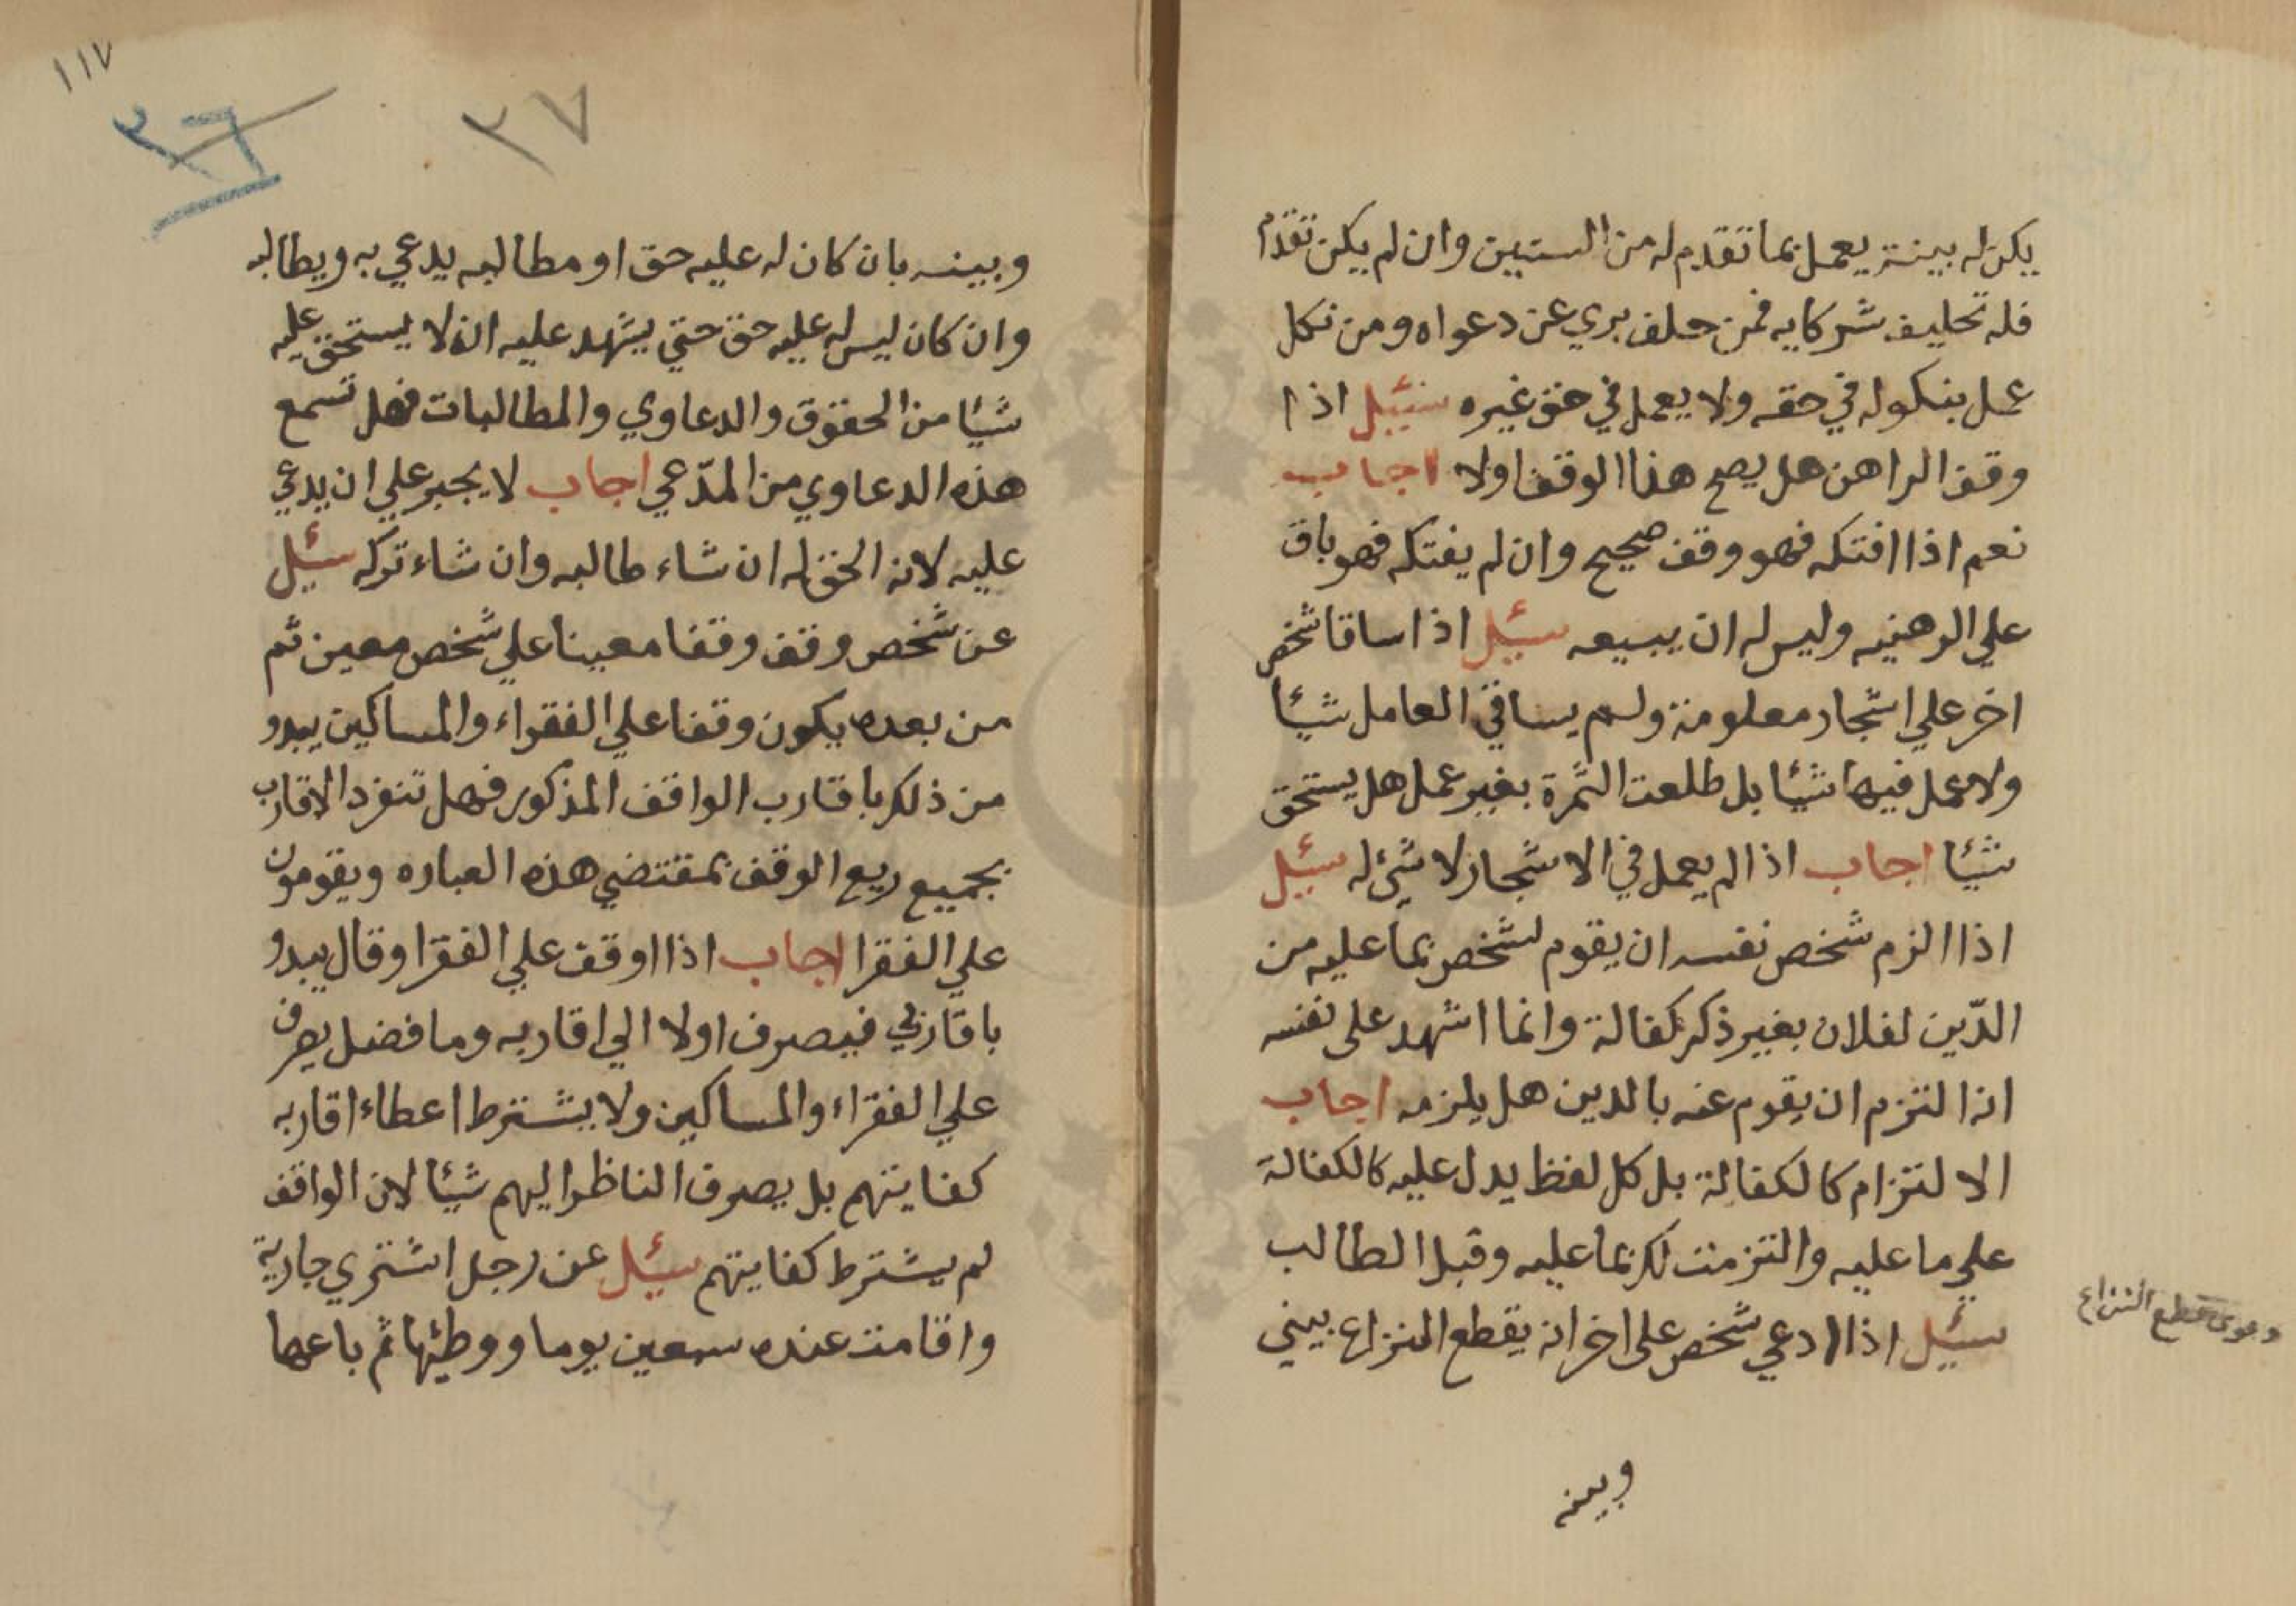 يكن له بينة يعمل بما تقدم له من السنين وان لم يكن تقدم
فله تحليف شركايه فمن حلف بري عن دعواه ومن نكل
عمل بنكوله في حقه ولا يعمل في حق غيره سئيل اذا
وقف الراهن هل يصح هذا الوقف اولا اجاب
نعم اذا افتكه فهو وقف صحيح وان لم يفتكه فهو باق
علي الرهنيه وليس له ان يبيعه سئيل اذا ساقا شخص
اخر علي اشجار معلومة ولم يساقي العامل شيئا
ولا عمل فيها شيئا بل طلعت الثمرة بغير عمل هل يستحق
شيئا اجاب اذا لم يعمل في الاشجار لا شئ له سئيل
اذا الزم شخص نفسه ان يقوم لشخص بما عليه من
الدّين لفلان بغير ذكر كفالة وانما اشهد على نفسه
انه التزم ان يقوم عنه بالدين هل يلزمه اجاب
الالتزام كالكفالة بل كل لفظ يدل عليه كالكفالة
علي ما عليه والتزمت لك بما عليه وقبل الطالب
سئيل اذا ادعي شخص على اخر انه يقطع النزاع بيني
دعوى قطع النزاع
وبينه
١١٧
٣٦
٣٧
وبينه بان كان له عليه حق او مطالبه يدعي به ويطالبه
وان كان ليس له عليه حق حتي يشهد عليه انه لا يستحق عليه
شيئا من الحقوق والدعاوي والمطالبات فهل تسمع
هذه الدعاوي من المدّعي اجاب لا يجبر علي ان يدعي
عليه لانه الحق له ان شاء طالبه وان شاء تركه سئيل
عن شخص وقف وقفا معينا علي شخص معين ثم
من بعده يكون وقفا علي الفقراء والمساكين يبدو
من ذلك باقارب الواقف المذكور فهل تنفرد الاقارب
بجميع ريع الوقف بمقتضي هذه العباره ويقومون
علي الفقرا اجاب اذا اوقف علي الفقرا وقال يبدو
باقاربي فيصرف اولا الي اقاربه وما فضل يصرف
علي الفقراء والمساكين ولا يشترط اعطاء اقاربه
كفايتهم بل يصرف الناظر اليهم شيئا لان الواقف
لم يشترط كفايتهم سئيل عن رجل اشتري جارية
واقامت عنده سبعين يوما ووطئها ثم باعها